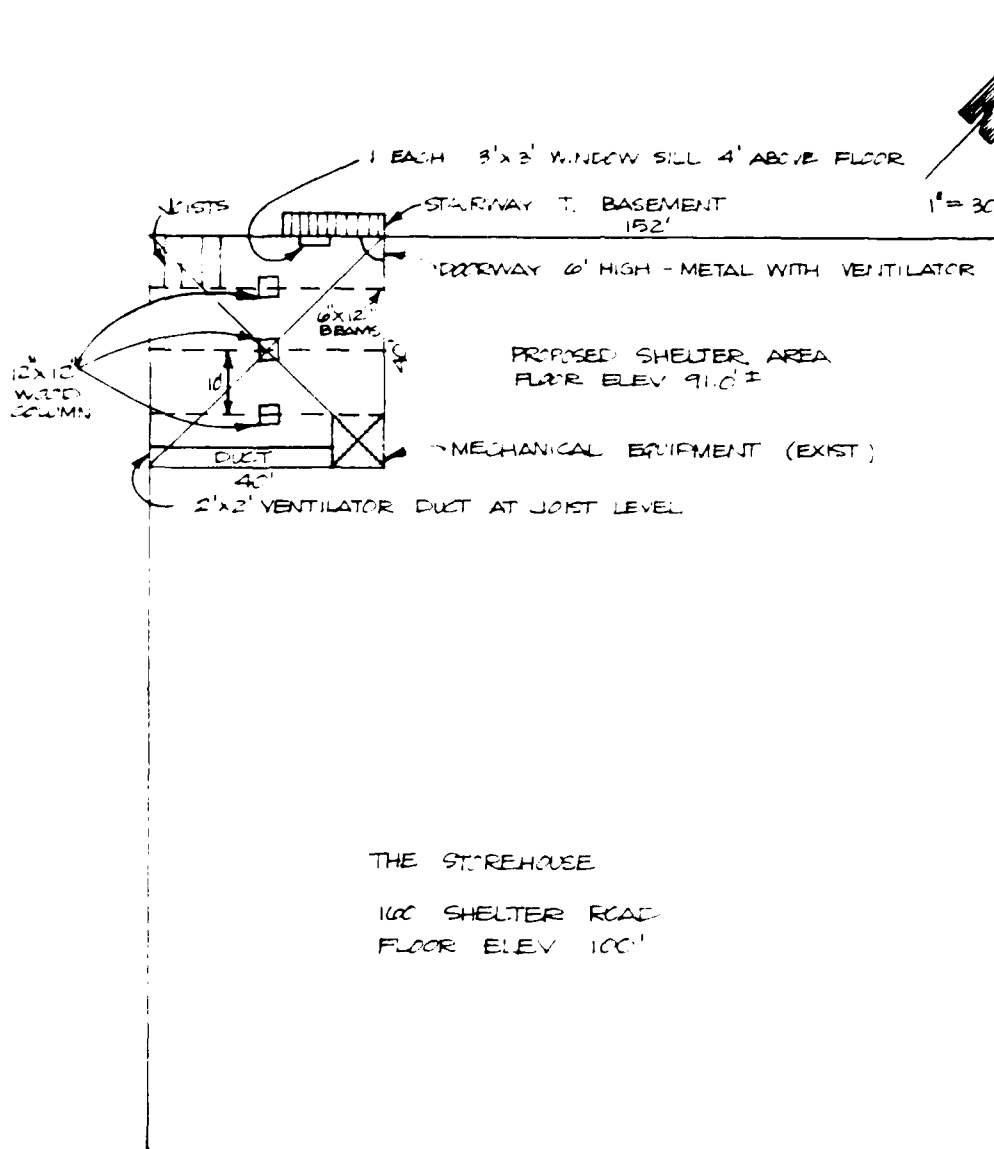 1 EACH 3'x3' WINDOW SILL 4' ABOVE FLOOR
JOISTS
STAIRWAY T. BASEMENT
152'
1" = 30
DOORWAY 6' HIGH - METAL WITH VENTILATOR
6"x12"
BEAMS
PROPOSED SHELTER AREA
FLOOR ELEV 91.0' ±
12"x12"
WOOD
COLUMN
10'
MECHANICAL EQUIPMENT (EXIST)
DUCT
40'
2'x2' VENTILATOR DUCT AT JOIST LEVEL
THE STOREHOUSE
160 SHELTER ROAD
FLOOR ELEV 100'